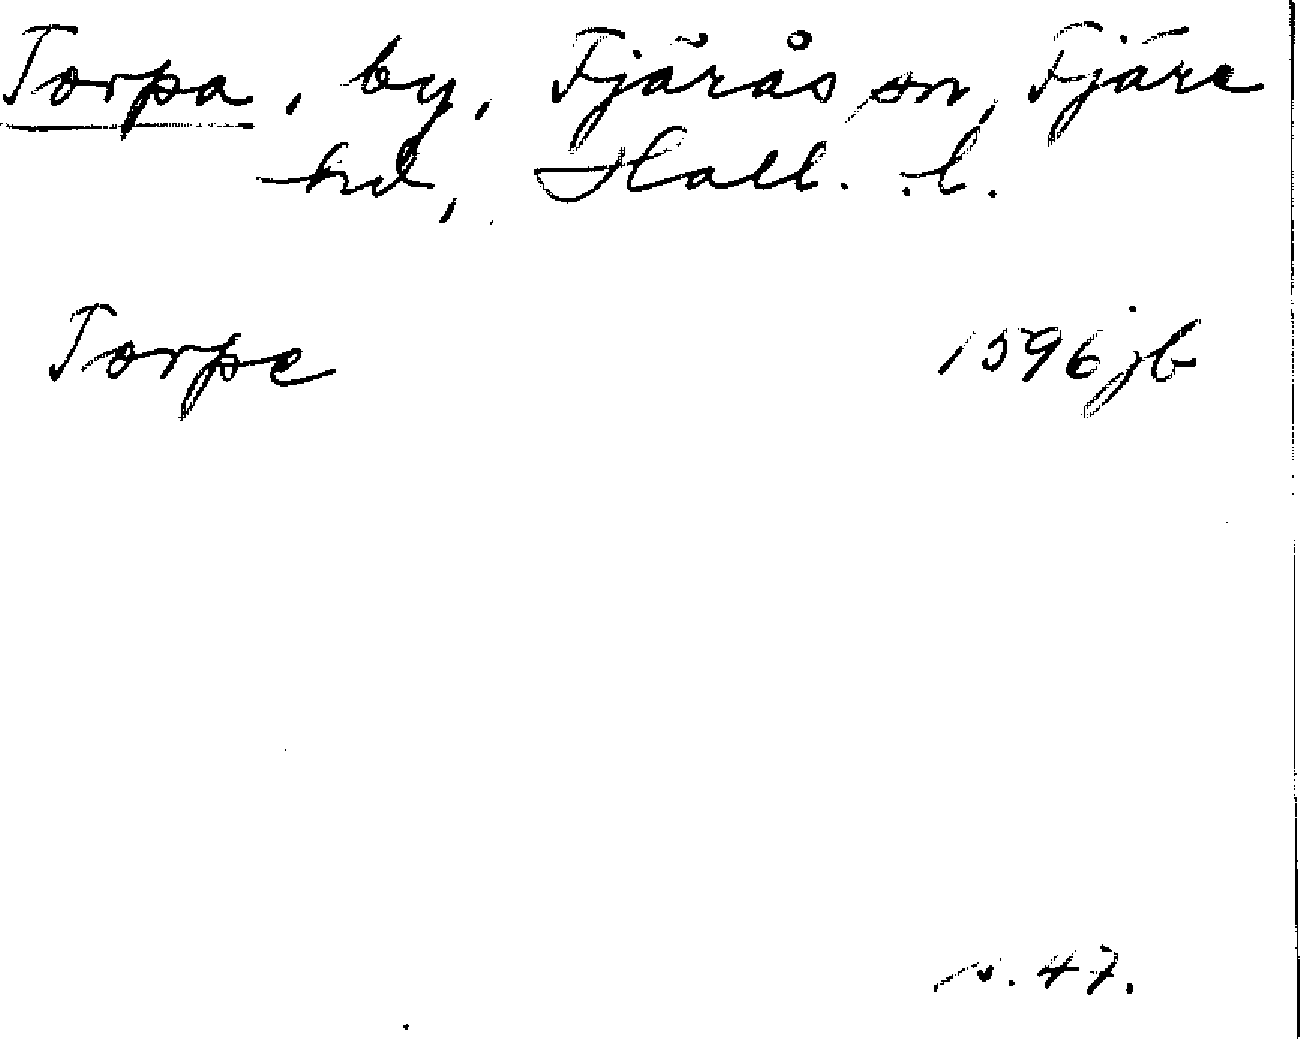 Torpa, by, Fjärås sn, Fjäre
hd, Hall. l.
Torpe 1596 jb
s. 47.